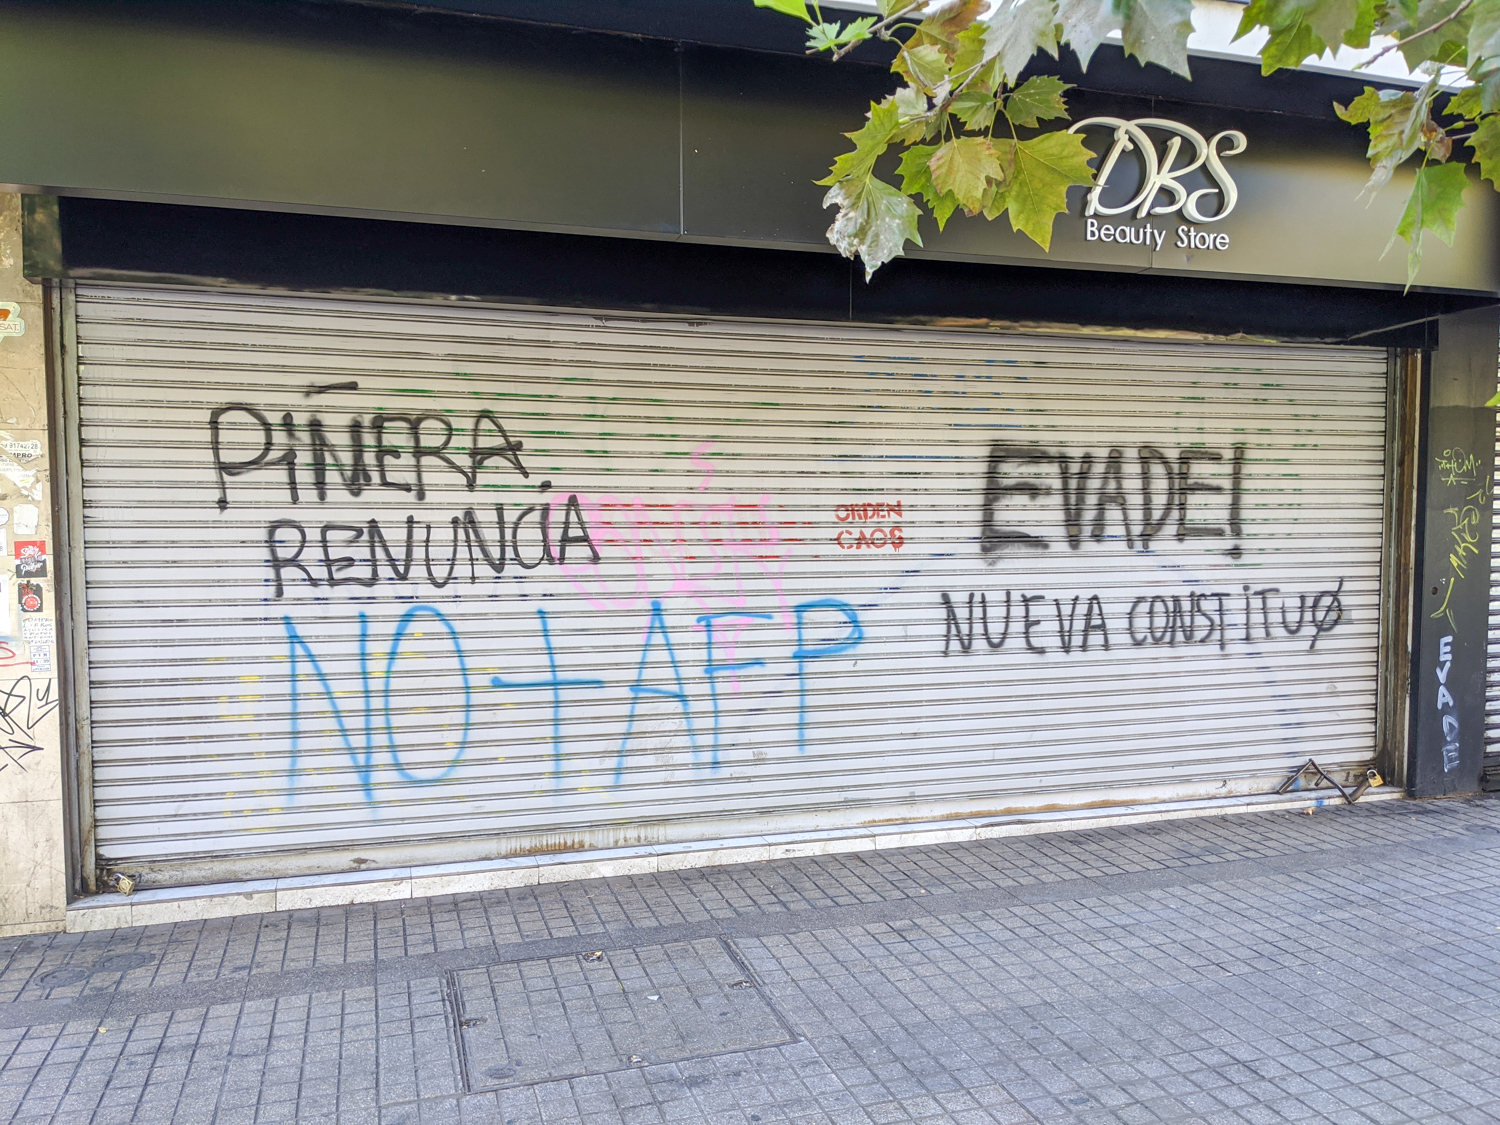 DBS
Beauty Store
PIÑERA
RENUNCIA
NO + AFP
ORDEN
CAOS
EVADE!
NUEVA CONSTITUØ
EVADE